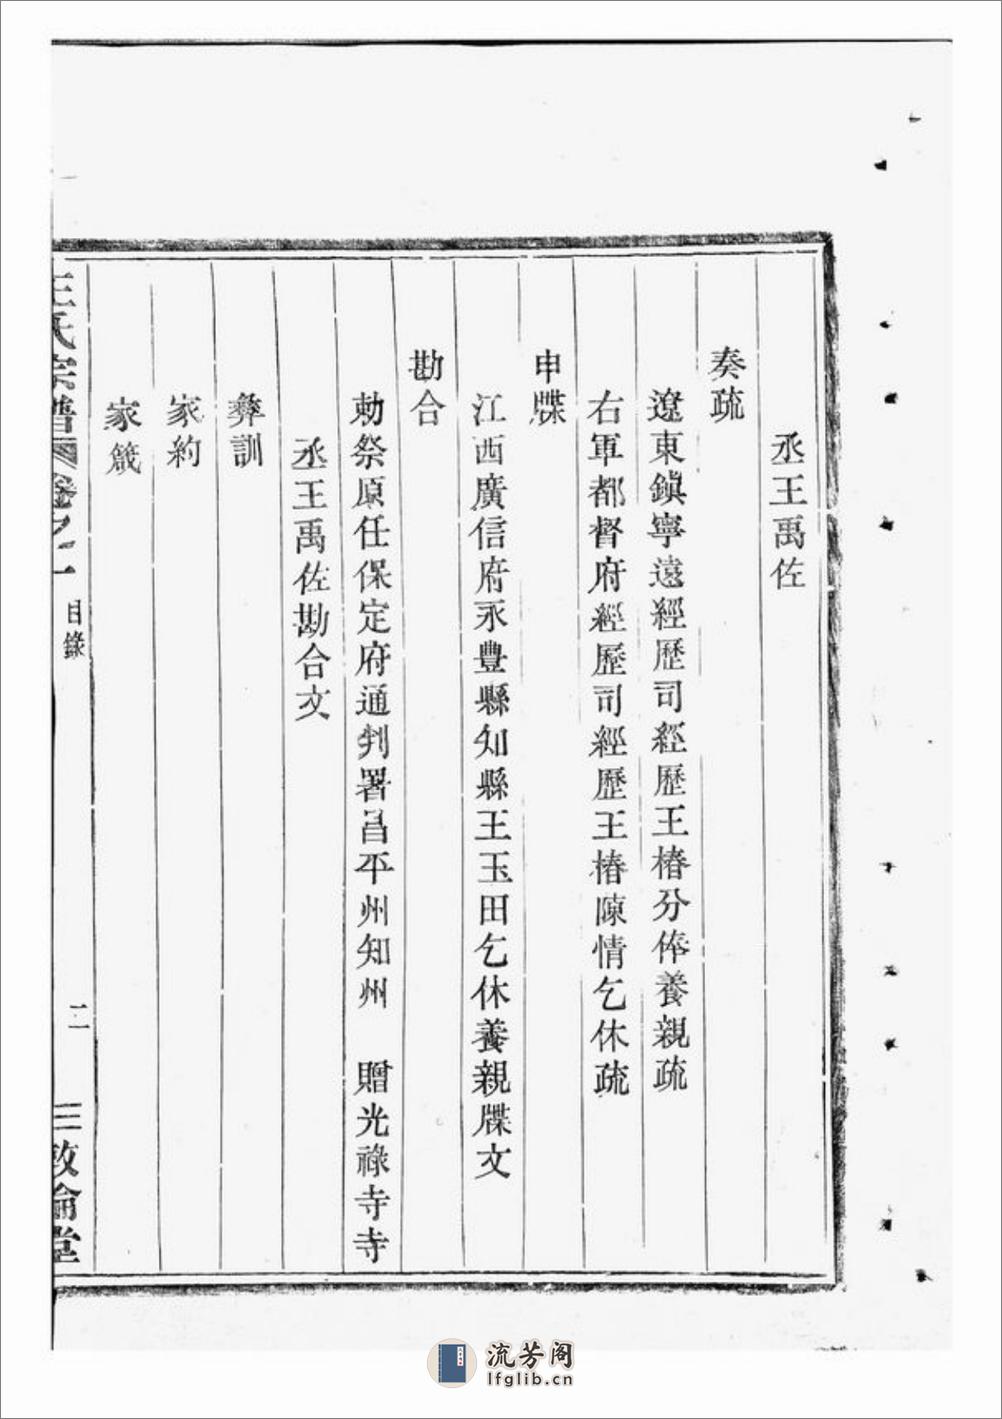 丞王禹佐
奏疏
遼東鎮寧遠經歷司經歷王椿分俸養親疏
右軍都督府經歷司經歷王椿陳情乞休疏
申牒
江西廣信府永豐縣知縣王玉田乞休養親牒文
勘合
勅祭原任保定府通判署昌平州知州　贈光祿寺寺
丞王禹佐勘合文
彝訓
家約
家箴
王氏宗譜 卷之二 目錄 二 三敦倫堂
流芳阁
lfglib.cn